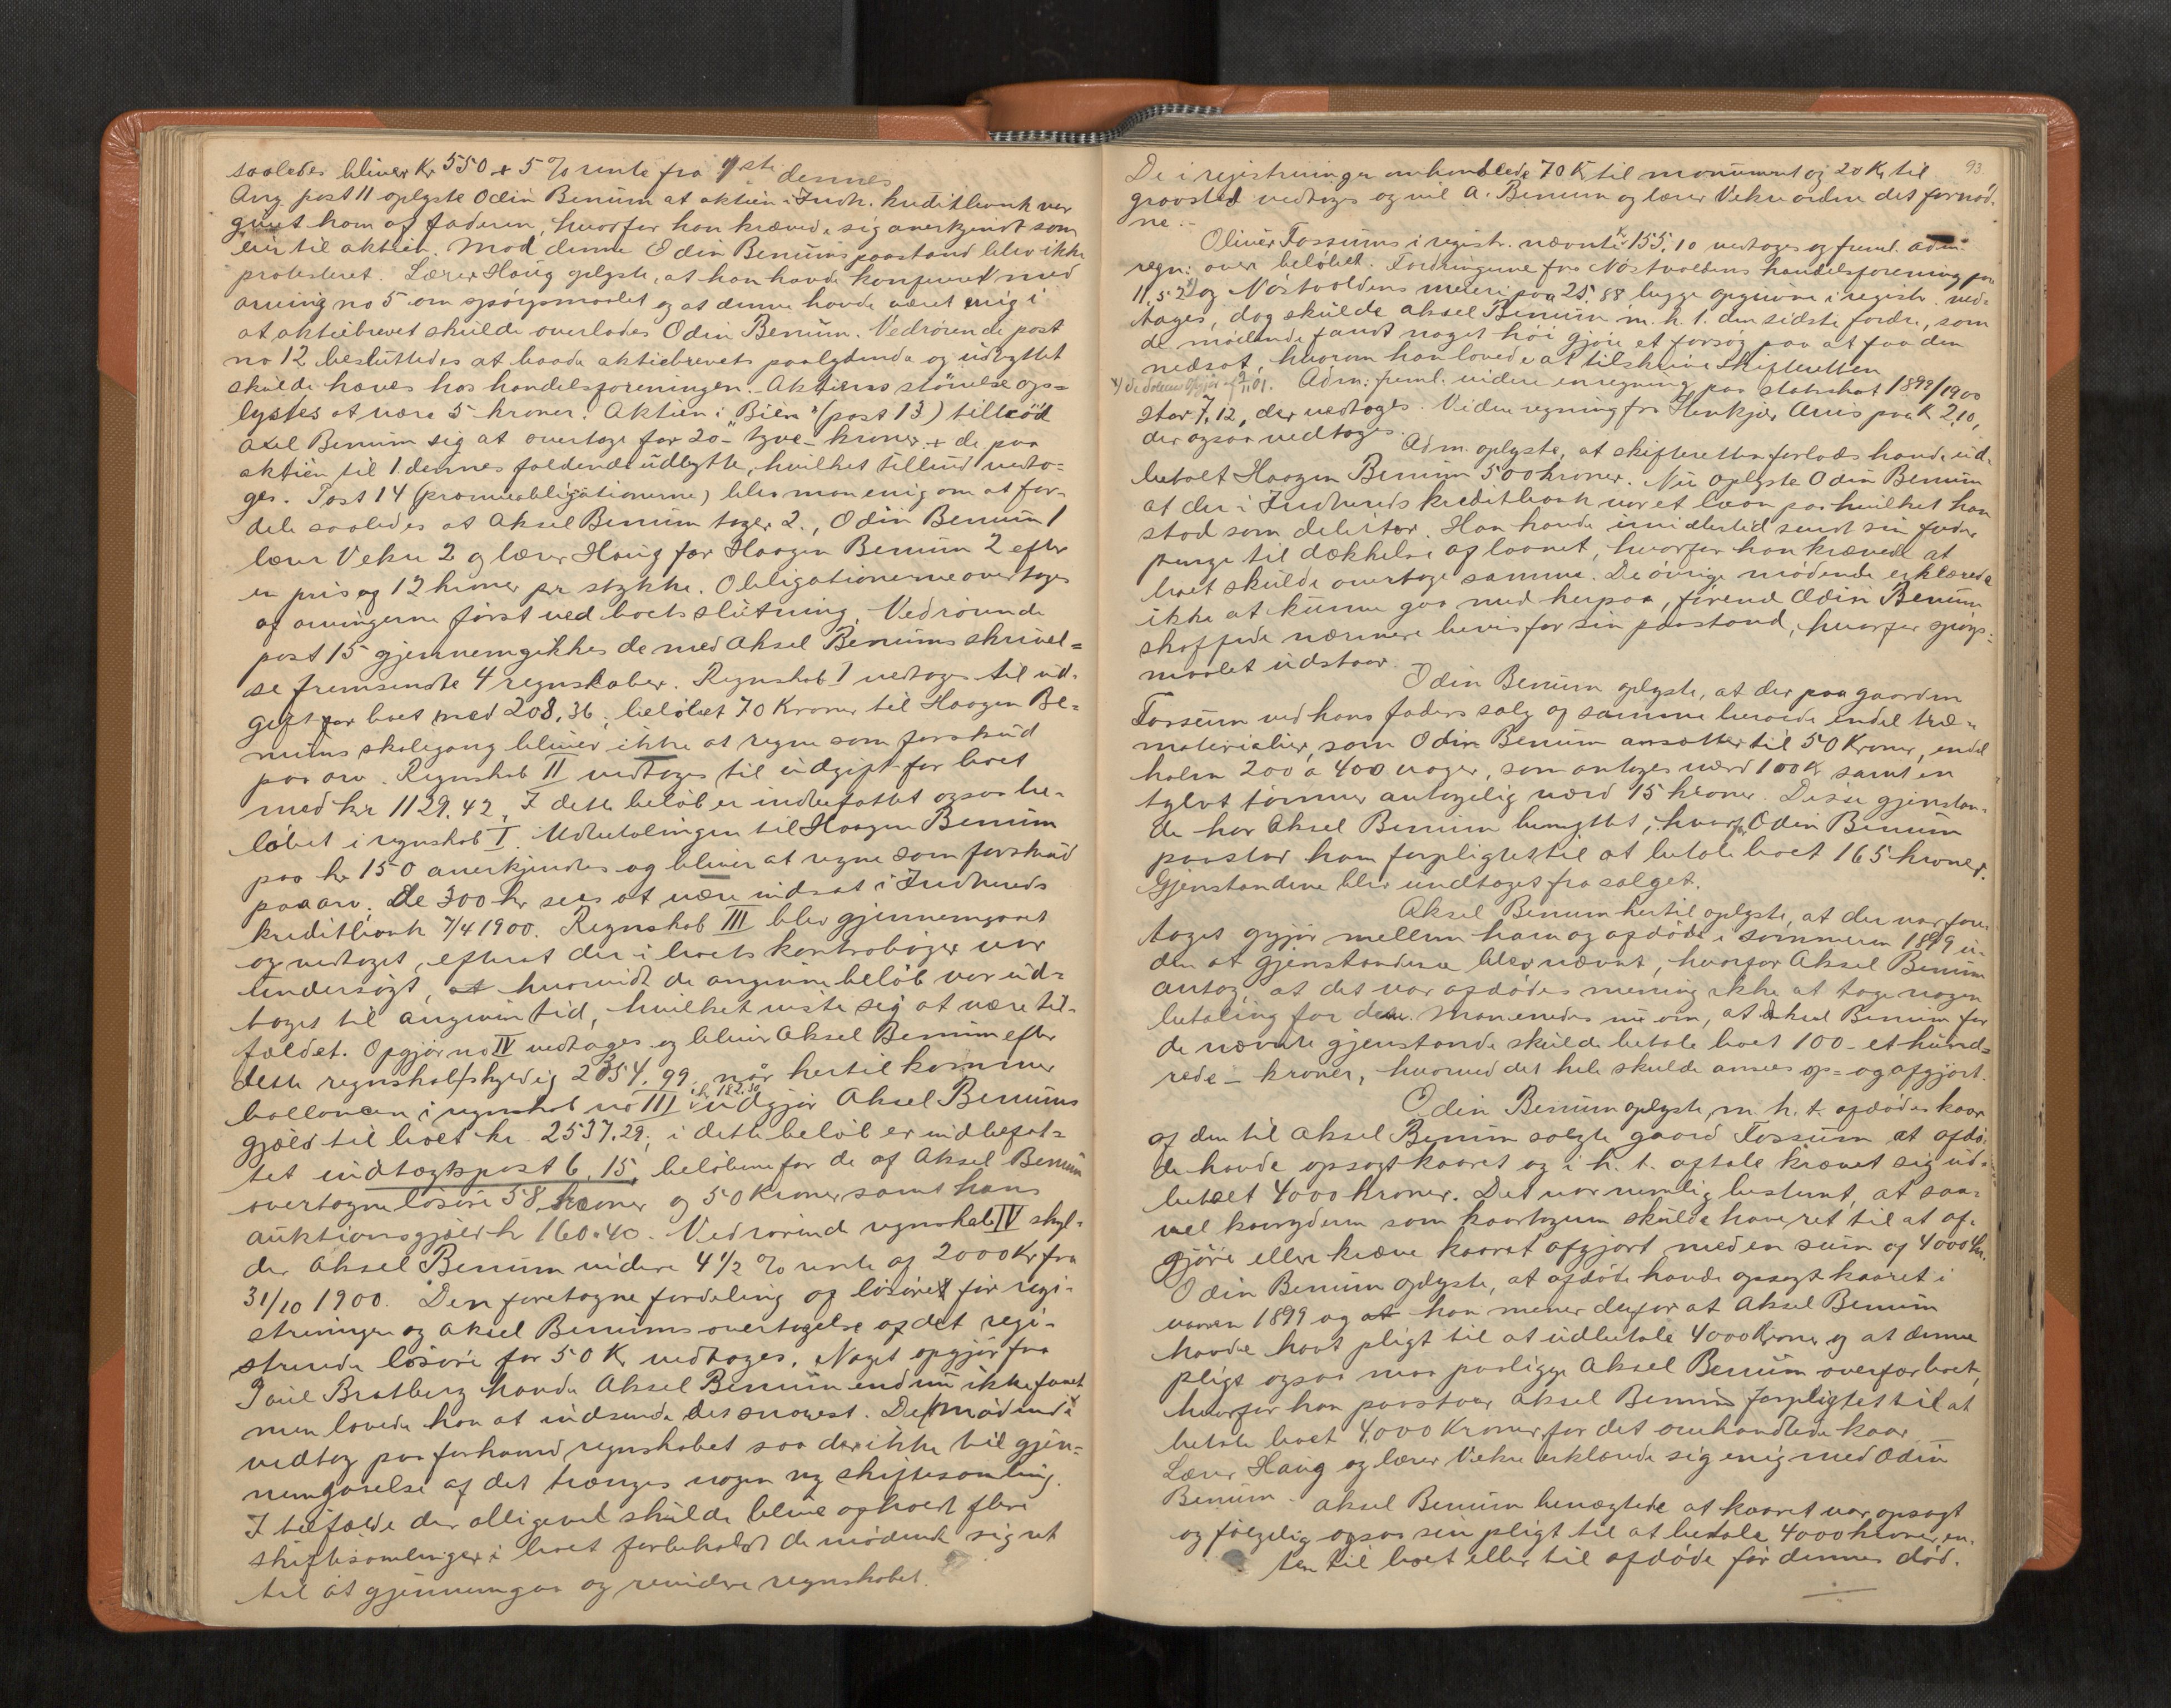 saaledes bliver Kr 550 + 5 % rente fra 1ste dennes
Ang. post 11 oplyste Odin Benum at aktien i Indh. kreditbank var
givet ham af faderen, hvorfor han krævede sig anerkjendt som
eier til aktien. Mod denne Odin Benums paastand blev ikke
protesteret. Lærer Haug oplyste, at han havde konfereret med
arving no 5 om spørgsmaalet og at denne havde været enig i
at aktiebrevet skulde overlades Odin Benum. Vedrørende post
no 12 besluttedes at baade aktiebrevets paalydende og udbyttet
skulde hæves hos handelsforeningen. Aktiens størrelse op=
lystes at være 5 kroner. Aktien i "Bien" (post 13) tilbød
Axel Benum sig at overtage for 20 - tyve - kroner + de paa
aktien til 1. dennes faldende udbytte, hvilket tilbud vedto=
ges. Post 14 (præmieobligationerne) blev man enig om at for-
dele saaledes at Aksel Benum tager 2, Odin Benum 1
lærer Vekre 2 og lærer Haug for Haagen Benum 2 efter
en pris og 12 kroner pr stykke. Obligationerne overtages
af arvingerne først ved boets slutning. Vedrørende
post 15 gjennemgikkes de med Aksel Benums skrivel=
se fremsendte 4 regnskaber. Regnskab I vedtages til ud-
gift for boet med 208,36, beløbet 70 Kroner til Haagen Be=
nums skolegang bliver ikke at regne som forskud
paa arv. Regnskab II vedtages til udgift for boet
med kr 1129.42. I dette beløb er indbefattet ogsaa be-
løbet i regnskab I. Udbetalingen til Haagen Benum
paa kr 150 anerkjendes og bliver at regne som forskud
paa arv. De 300 kr sees at være indsat i Indhereds
kreditbank 7/4 1900. Regnskab III blev gjennemgaaet
og vedtaget, efterat der i boets kontrabøger var
undersøgt, at hvorvidt de angivne beløb var ud=
taget til angiven tid, hvilket viste sig at være til-
fældet. Opgjør no IV vedtages og bliver Aksel Benum efter
dette regnskab skyldig 2354.99, når hertil kommer
ballancen i regnskab no III kr. 182.30 udgjør Aksel Benums
gjæld til boet kr. 2537.29; i dette beløb er indbefat=
tet indtægtspost 6, 15, beløbene for de af Aksel Benum
overtagne løsøre 58 kroner og 50 Kroner samt hans
auktionsgjæld kr 160.40. Vedrørende regnskab IV skyl-
der Aksel Benum videre 4 1/2 % rente af 2000 Kr fra
31/10 1900. Den foretagne fordeling af løsøret før regi-
streringen og Aksel Benums overtagelse af det regi-
strerede løsøre for 50 Kr vedtages. Noget opgjør fra
Paul Bratberg havde Aksel Benum endnu ikke faaet
men lovede han at indsende det snarest. De mødende
vedtog paa forhaand regnskabet saa der ikke til gjen=
nemgaaelse af det trænges nogen ny skiftesamling.
I tilfælde der alligevel skulde blive afholdt flere
skiftesamlinger i boet forbeholdt de mødende sig ret
til at gjennemgaa og revidere regnskabet.
93
De i registreringen omhandlede 70 Kr til monument og 20 Kr til
gravsted vedtages og vil A. Benum og lærer Vekre ordne det fornød-
ne.-
Oliver Fossums i registr. nævnte Kr 155,10 vedtages og freml. adm.
regn. over beløbet. Fordringerne fra Nøstvoldens handelsforening paa
11,52 x) og Nøstvoldens meieri paa 25.88 begge opgivne i registr. ved-
tages, dog skulde Aksel Benum m. h. t. den sidste fordr., som
de mødende fandt noget høi gjøre et forsøg paa at faa den
nedsat, hvorom han lovede at tilskrive skifteretten
Adm. freml. videre en regning paa statsskat 1899/1900
stor 7,12, der vedtages. Videre regning fra Stenkjær Avis paa K 2,10,
der ogsaa vedtages.
Adm. oplyste, at skifteretten forlods havde ud-
betalt Haagen Benum 500 kroner. Nu oplyste Odin Benum
at der i Indhereds kreditbank var et laan paa hvilket han
stod som debitor. Han havde imidlertid sendt sin fader
penge til dækkelse af laanet, hvorfor han krævede at
boet skulde overtage samme. De øvrige mødende erklærede
ikke at kunne gaa med herpaa, førend Odin Benum
skaffede nærmere bevis for sin paastand, hvorfor spørgs=
maalet udstaar.
Odin Benum oplyste, at der paa gaarden
Fossum ved hans faders salg af samme beroede endel træ-
materialier, som Odin Benum ansætter til 50 Kroner, endel
halm 200 a 400 voger, som antages værd 100 Kr samt en
tylvt tømmer antagelig værd 15 kroner. Disse gjenstan-
de har Aksel Benum benyttet, hvorfor Odin Benum
paastod ham forpligtet til at betale boet 165 kroner.
Gjenstandene blev undtaget fra salget.
Aksel Benum hertil oplyste, at der var fore-
taget opgjør mellem ham og afdøde i sommeren 1899 u-
den at gjenstandene blev nævnt, hvorfor Aksel Benum
antog, at det var afdødes mening ikke at tage nogen
betaling for dem. Man enedes nu om, at Aksel Benum for
de nævnte gjenstande skulde betale boet 100 - et hund=
rede - kroner, hvormed det hele skulde ansees op- og afgjort.
Odin Benum oplyste m. h. t. afdødes kaar
af den til Aksel Benum solgte gaard Fossum at afdø-
de havde opsagt kaaret og i h. t. aftale krævet sig ud-
betalt 4000 kroner. Det var nemlig bestemt, at saa-
vel kaaryderen som kaartageren skulde have ret til at af-
gjøre eller kræve kaaret afgjort med en sum af 4000 Kr.
Odin Benum oplyste, at afdøde havde opsagt kaaret i
vaaren 1899 og at han mener derfor at Aksel Benum
havde havt pligt til at udbetale 4000 Kroner og at denne
pligt ogsaa maa paaligge Aksel Benum overfor boet,
hvorfor han paastaar Aksel Benum forpligtet til at
betale boet 4000 Kroner for det omhandlede kaar.
Lærer Haug og lærer Vekre erklærede sig enig med Odin
Benum. - Aksel Benum benægtede at kaaret var opsagt
og følgelig ogsaa sin pligt til at betale 4000 kroner en-
ten til boet eller til afdøde før dennes død.